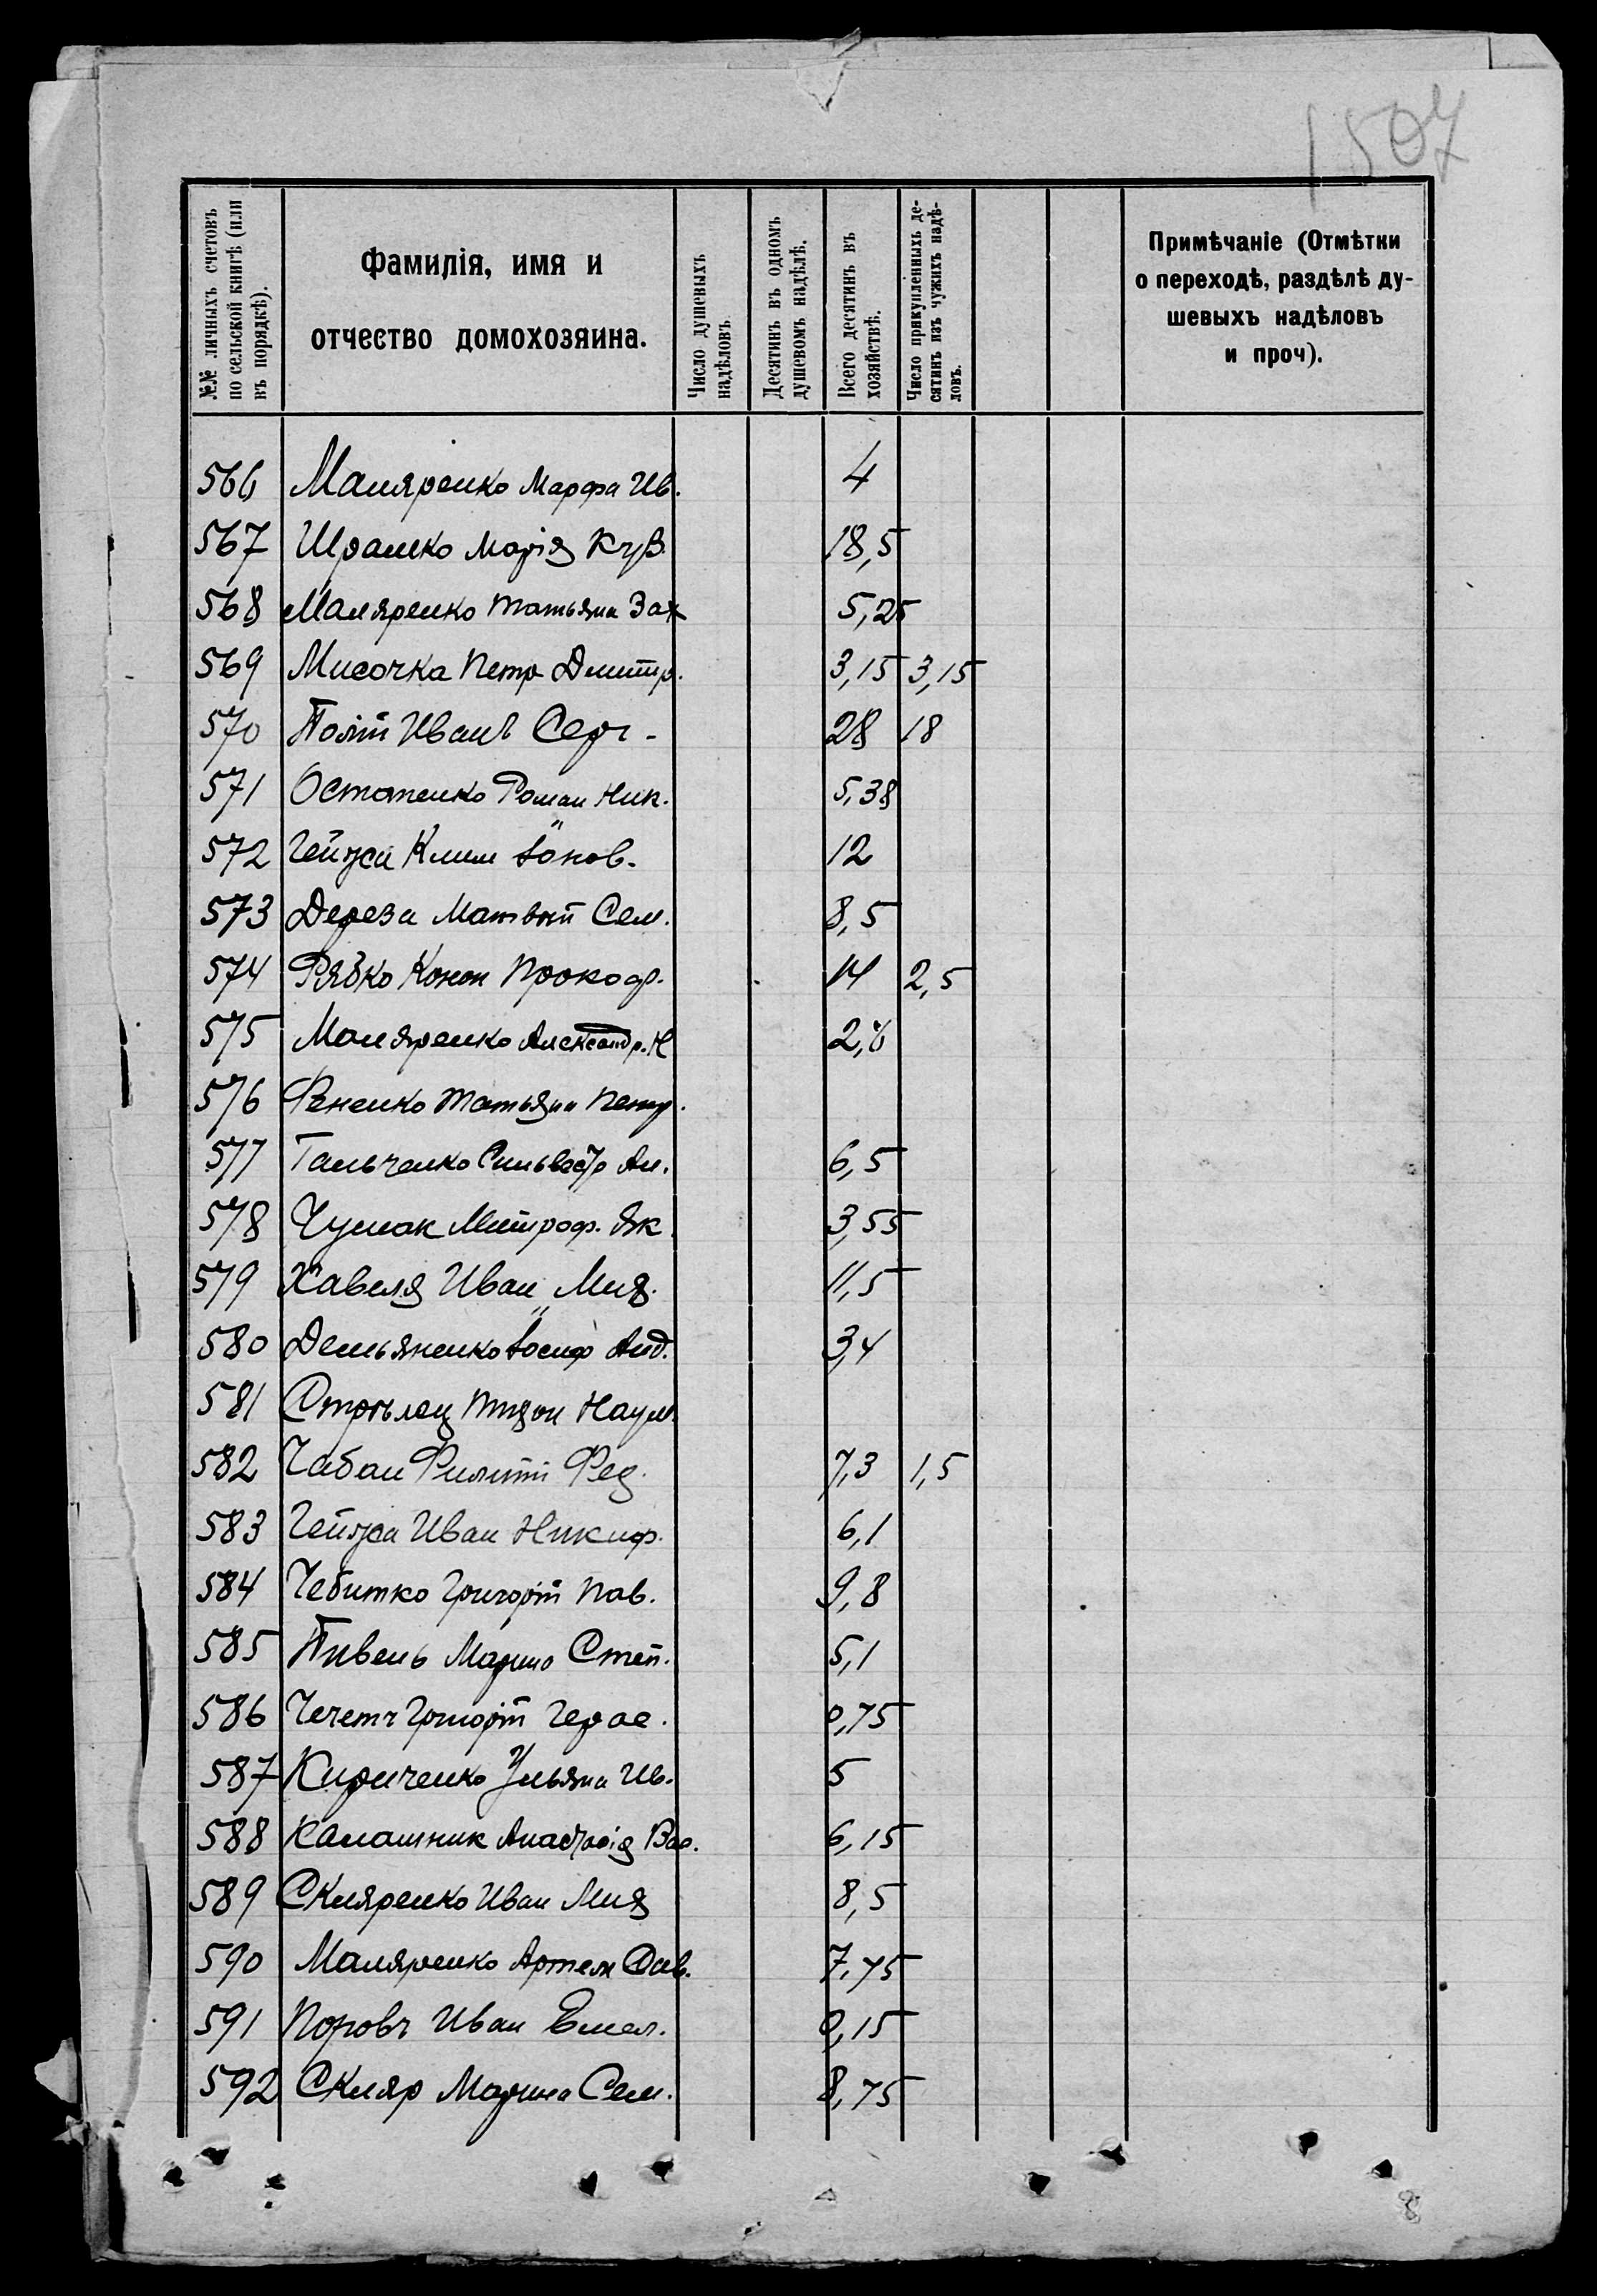 1507
№№ личныхъ счетовъ
по сельской книгѣ (или
въ порядкѣ).
Фамилія, имя и
отчество домохозяина.
Число душевыхъ
надѣловъ
Десятинъ въ одномъ
душевомъ надѣлѣ.
Всего десятинъ въ
хозяйствѣ.
Число прикупленныхъ де-
сятинъ изъ чужихъ надѣ-
ловъ.
Примѣчаніе (Отмѣтки
о переходѣ, раздѣлѣ ду-
шевыхъ надѣловъ
и проч).
566 Маляренко Марфа Ив. 4
567 Шрамко Марія Куз. 18,5
568 Маляренко Татьяна Зах 5,25
569 Мисочка Петр Дмитр. 3,15 3,15
570 Иванъ Серг. 28 18
571 Остапенко Роман Ник. 5,38
572 Клим 12
573 Дереза Матвѣй Сем. 8,5
574 Рябко Конон Прокоф. 14 2,5
575 Маляренко Александр. Н
576 Фененко Татьяна Петр.
577 Гальченко Сильвестр Ан. 6,5
578 Чумак Митроф. Як. 3,55
579 Хавеля Иван Мих. 11,5
580 Демьяненко Іосиф Анд. 3,4
581 Стрѣлец Наум.
582 Чабан Филипп Фед. 7,3 1,5
583 Иван Никиф. 6,1
584 Чебитко Григорій Пав. 9,8
585 Пивень Марина Степ. 5,1
586 Чечетъ Григорій Герас. 0,75
587 Кириченко Ульяна Ив. 5
588 Калашник Анастасія Вас. 6,15
589 Скляренко Иван Мих 8,5
590 Маляренко Артем Сав. 7,75
591 Иван Емел. 0,15
592 Скляр Марина Сем. 8,75
8